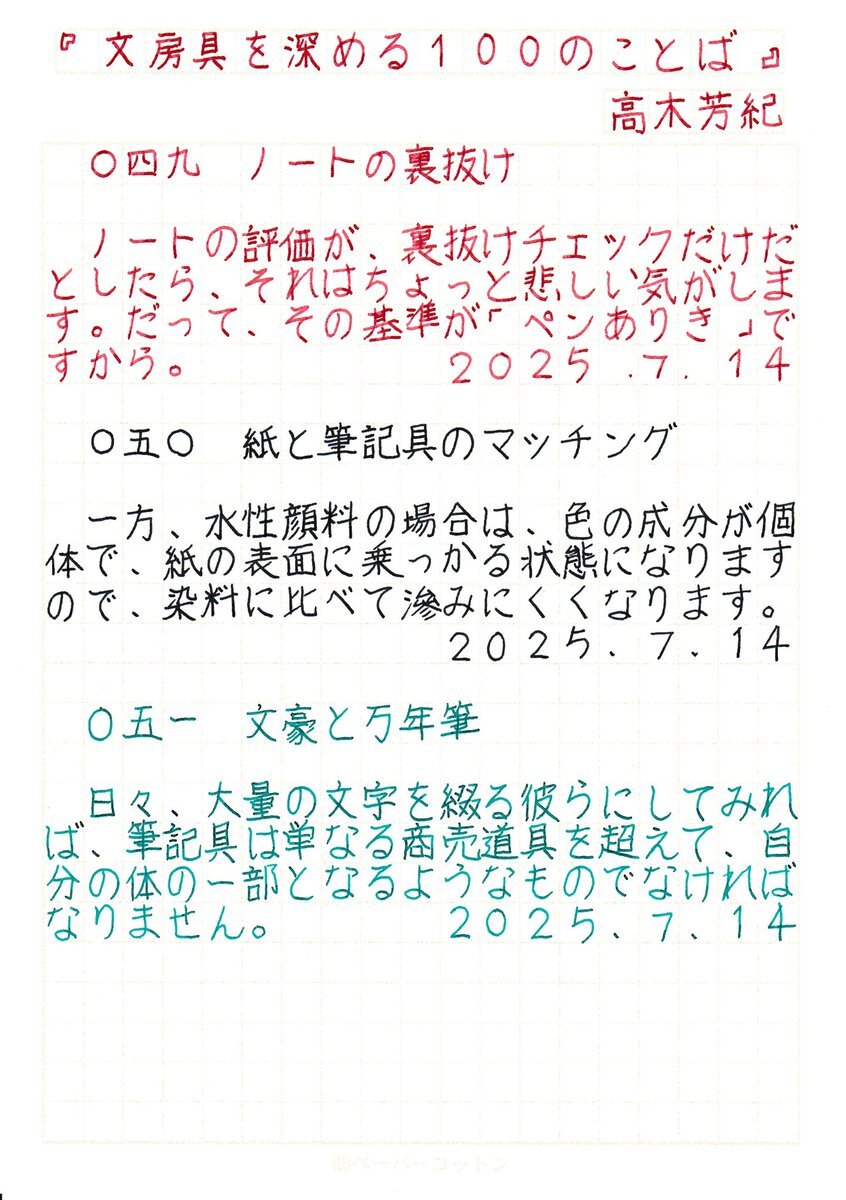 『文房具を深める100のことば』
高木芳紀
〇四九　ノートの裏抜け
ノートの評価が、裏抜けチェックだけだ
としたら、それはちょっと悲しい気がしま
す。だって、その基準が「ペンありき」で
すから。　2025.7.14
〇五〇　紙と筆記具のマッチング
一方、水性顔料の場合は、色の成分が個
体で、紙の表面に乗っかる状態になります
ので、染料に比べて滲みにくくなります。
2025.7.14
〇五一　文豪と万年筆
日々、大量の文字を綴る彼らにしてみれ
ば、筆記具は単なる商売道具を超えて、自
分の体の一部となるようなものでなければ
なりません。　2025.7.14